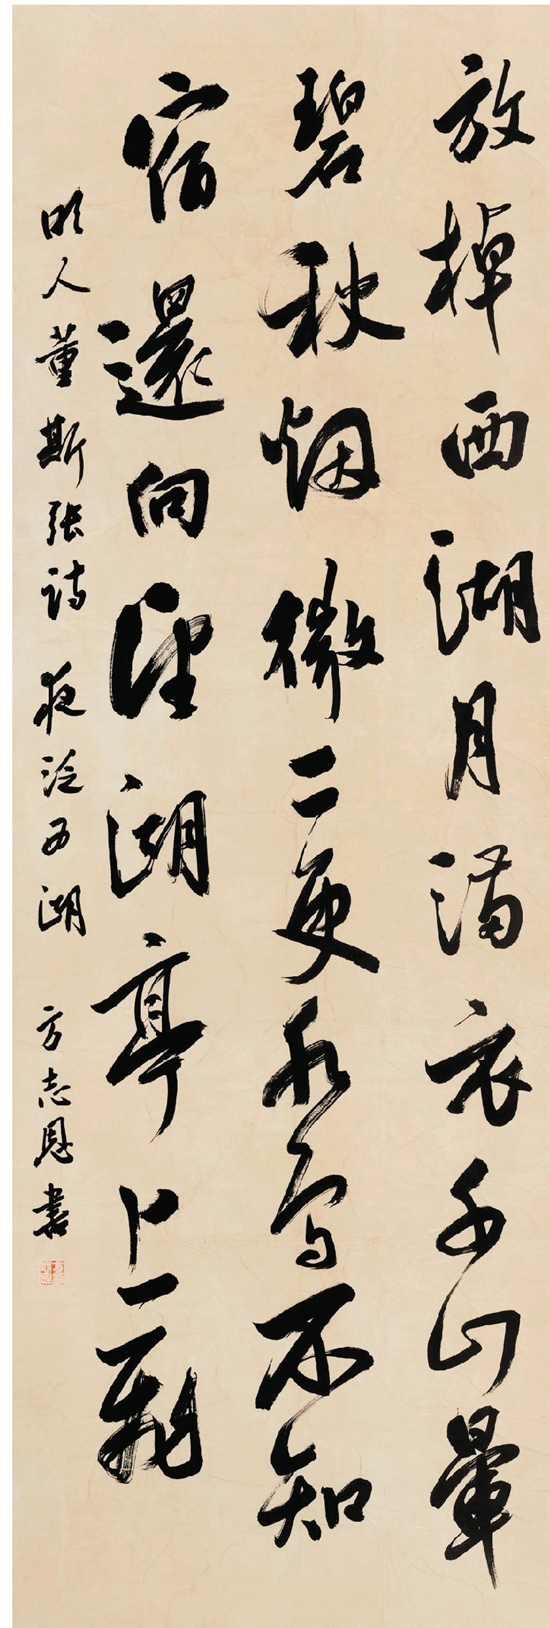 放棹西湖月满衣千山暈
碧秋烟微二更水鸟不知
宿還向望湖亭上飛
明人董斯张诗夜泛西湖 方志恩書